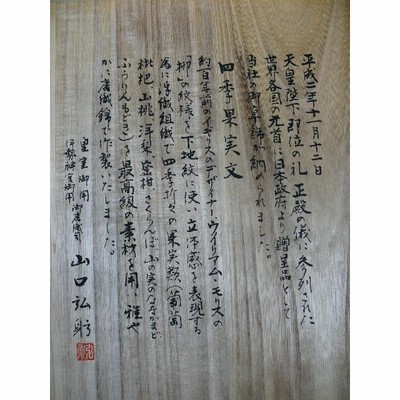 平成二年十一月十二日
天皇陛下即位の礼 正殿の儀に参列された
世界各国の元首に日本政府より贈呈品として
当社の御草錦が納められました。
四季果実文
約百年前のイギリスのデザイナー ウイリアム・モリスの
「柳」の紋様を下地紋に使い立体感を表現する
為に 織組織で四季折々の果実類(葡萄
枇杷 山桃 洋梨 蜜柑 さくらんぼ 山の実のななかまど
ふうりんもどき)を最高級の素材を用い 雅や
かに唐織錦で作製いたしました。
皇室御用
伊勢神宮御用 御唐織司
山口弘